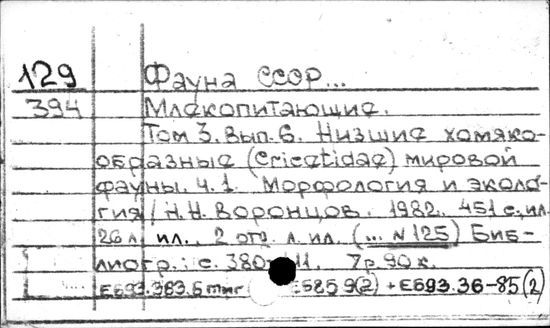 129 Фауна СССР...
394 Млекопитающие.
Том 3. Вып. 6. Низшие хомяко-
образные (Cricetidae) мировой
фауны. Ч. 1. Морфология и эколо-
гия / Н.Н. Воронцов. 1982. 451 с., ил.
26 л. ил., 2 отд. л. ил. (... N 125) Биб-
лиогр.: с. 380- 11. 7р. 90к.
Е693.363.6 Е585 9(2) + Е693.36-85(2)